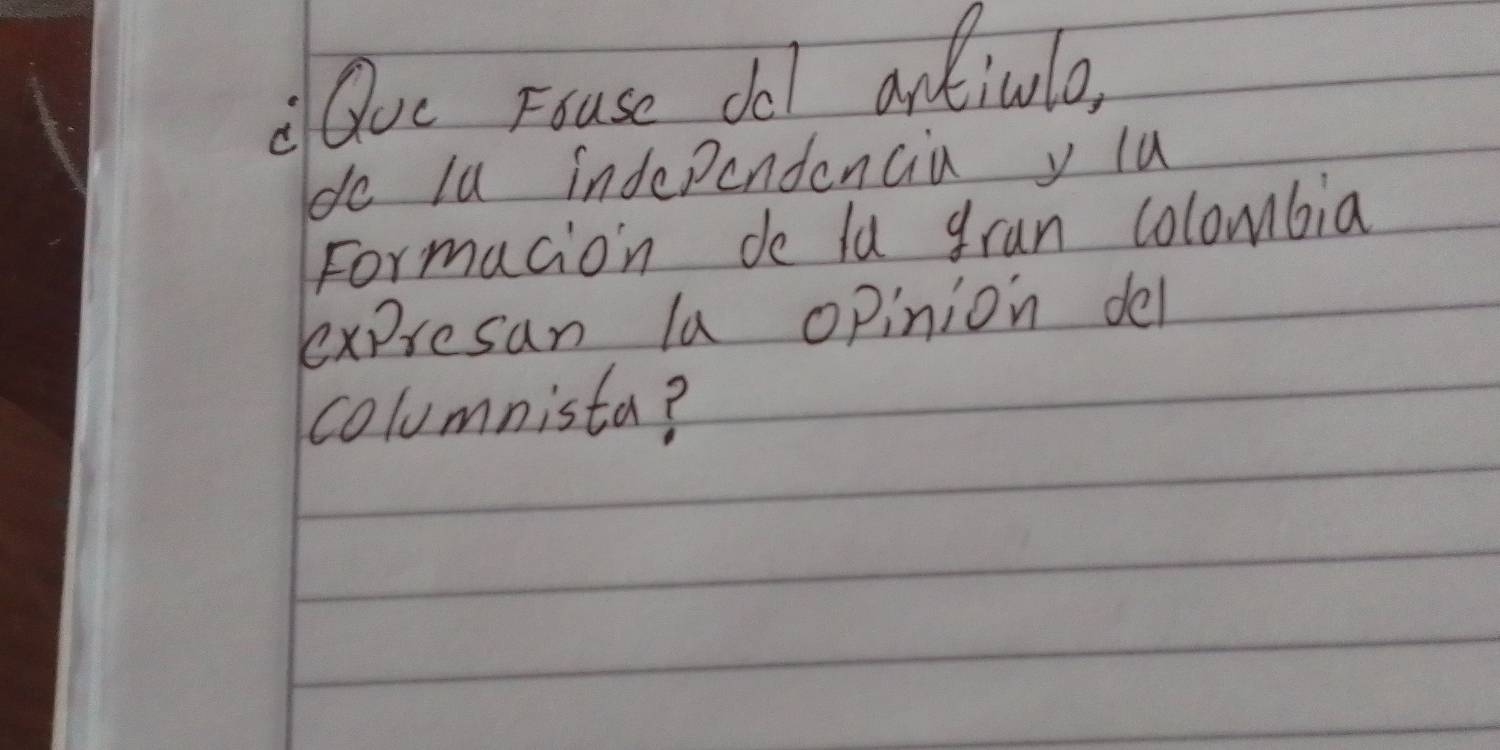 ¿Que Frase del articulo,
de la independencia y la
Formación de la gran colombia
expresan la opinión del
columnista?